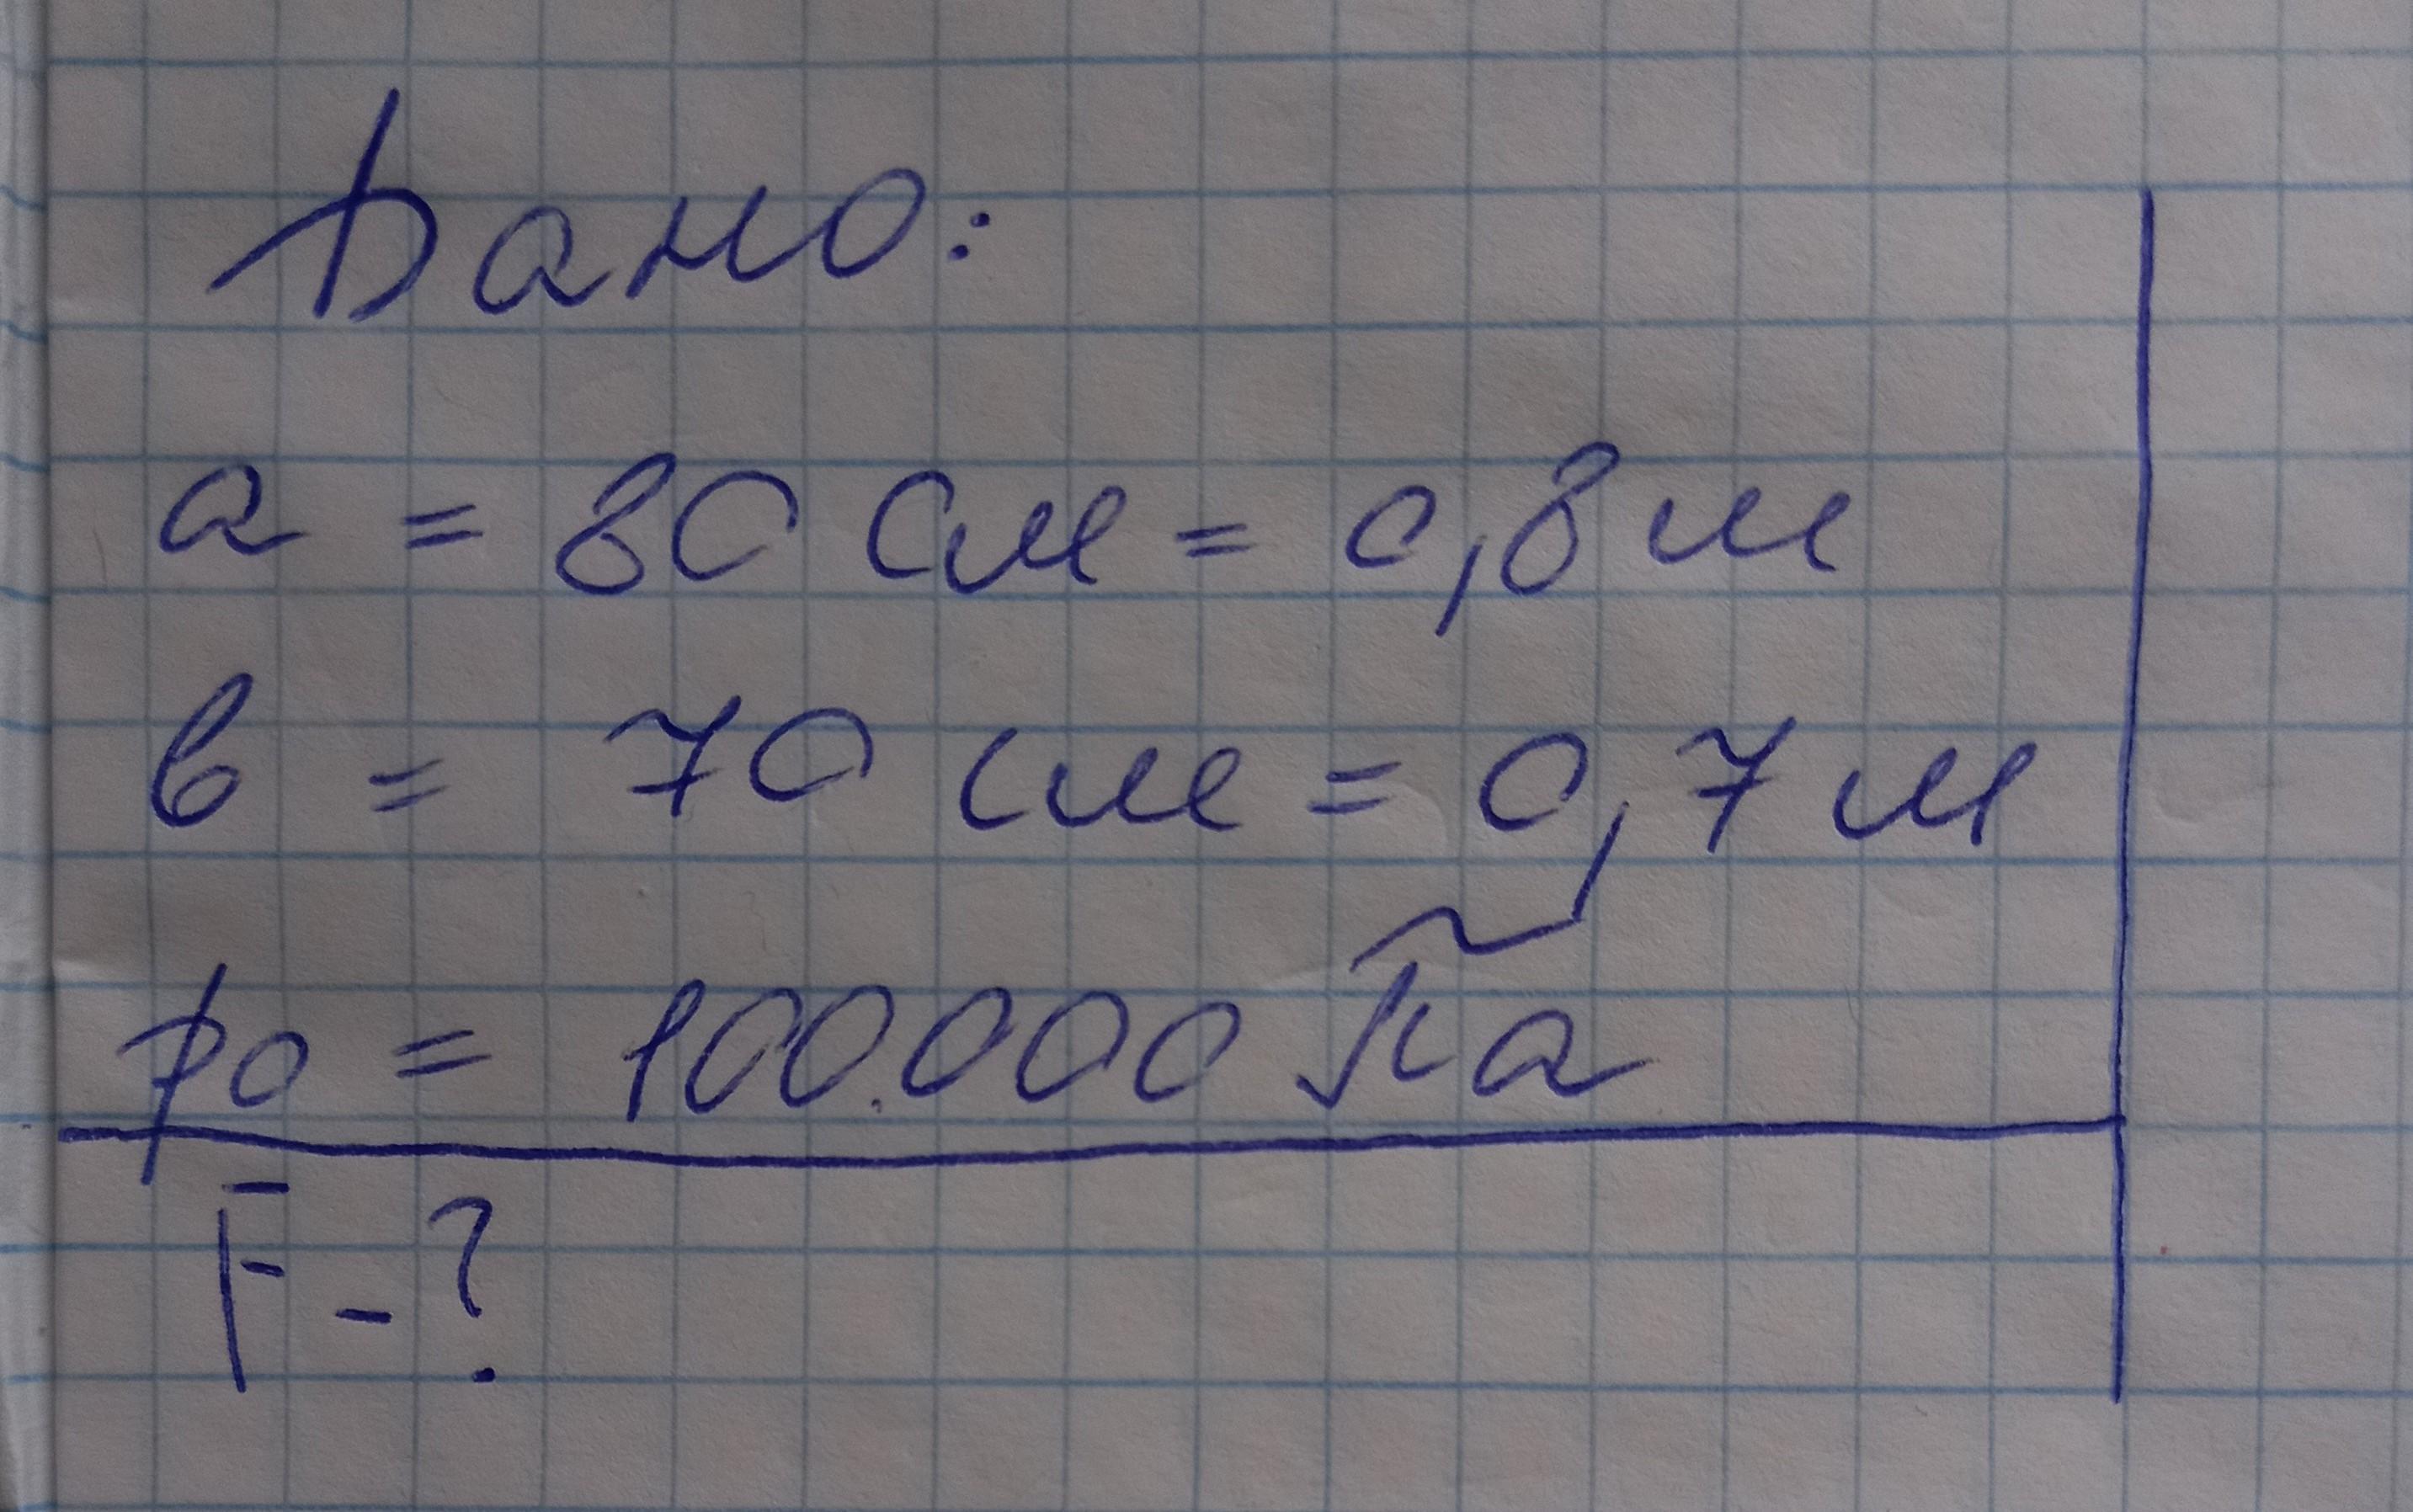 Дано:
а = 80 см = 0,8 м
в = 70 см = 0,7 м
po = 100.000 Па
F - ?